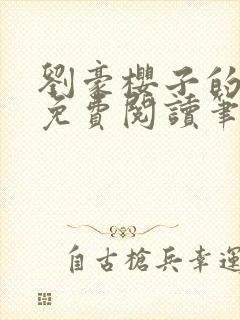 劉豪櫻子的
免費閱讀筆
自古槍兵幸運